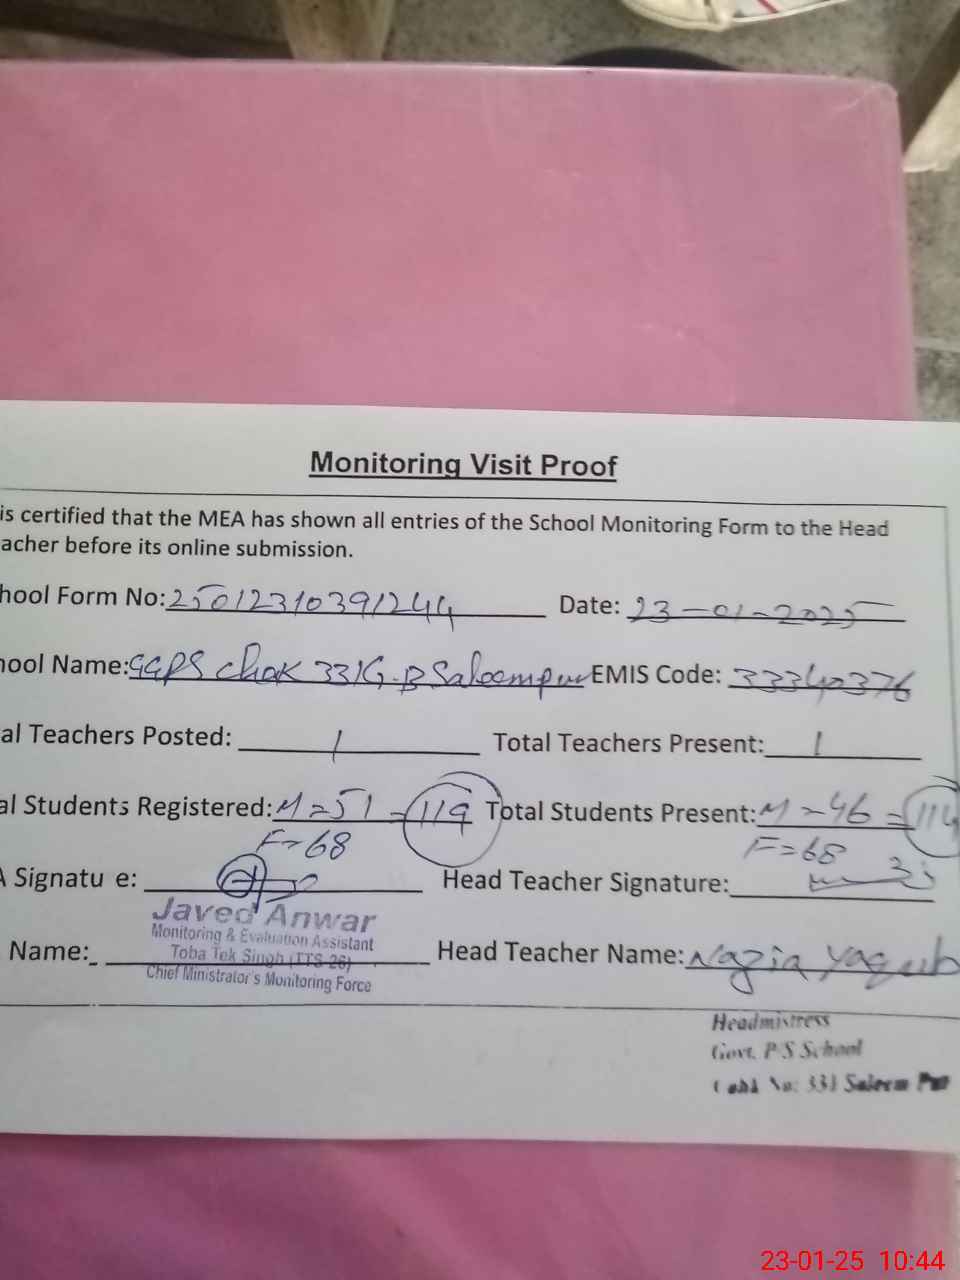 Monitoring Visit Proof
is certified that the MEA has shown all entries of the School Monitoring Form to the Head
acher before its online submission.
hool Form No: 25012310391244 Date: 23-01-2025
hool Name: GGPS Chak 331G.B Saleempur EMIS Code: 33340376
al Teachers Posted: 1 Total Teachers Present: 1
al Students Registered: M=51 =119 Total Students Present: M=46 =114
F=68 F=68
A Signatu e: Head Teacher Signature:
Javed Anwar
Monitoring & Evaluation Assistant
Toba Tek Singh (TTS-26)
Chief Ministrator's Monitoring Force
Name: Head Teacher Name: Nazia Yaqub
Headmistress
Govt. P/S School
No: 331 Saleem Pur
23-01-25 10:44